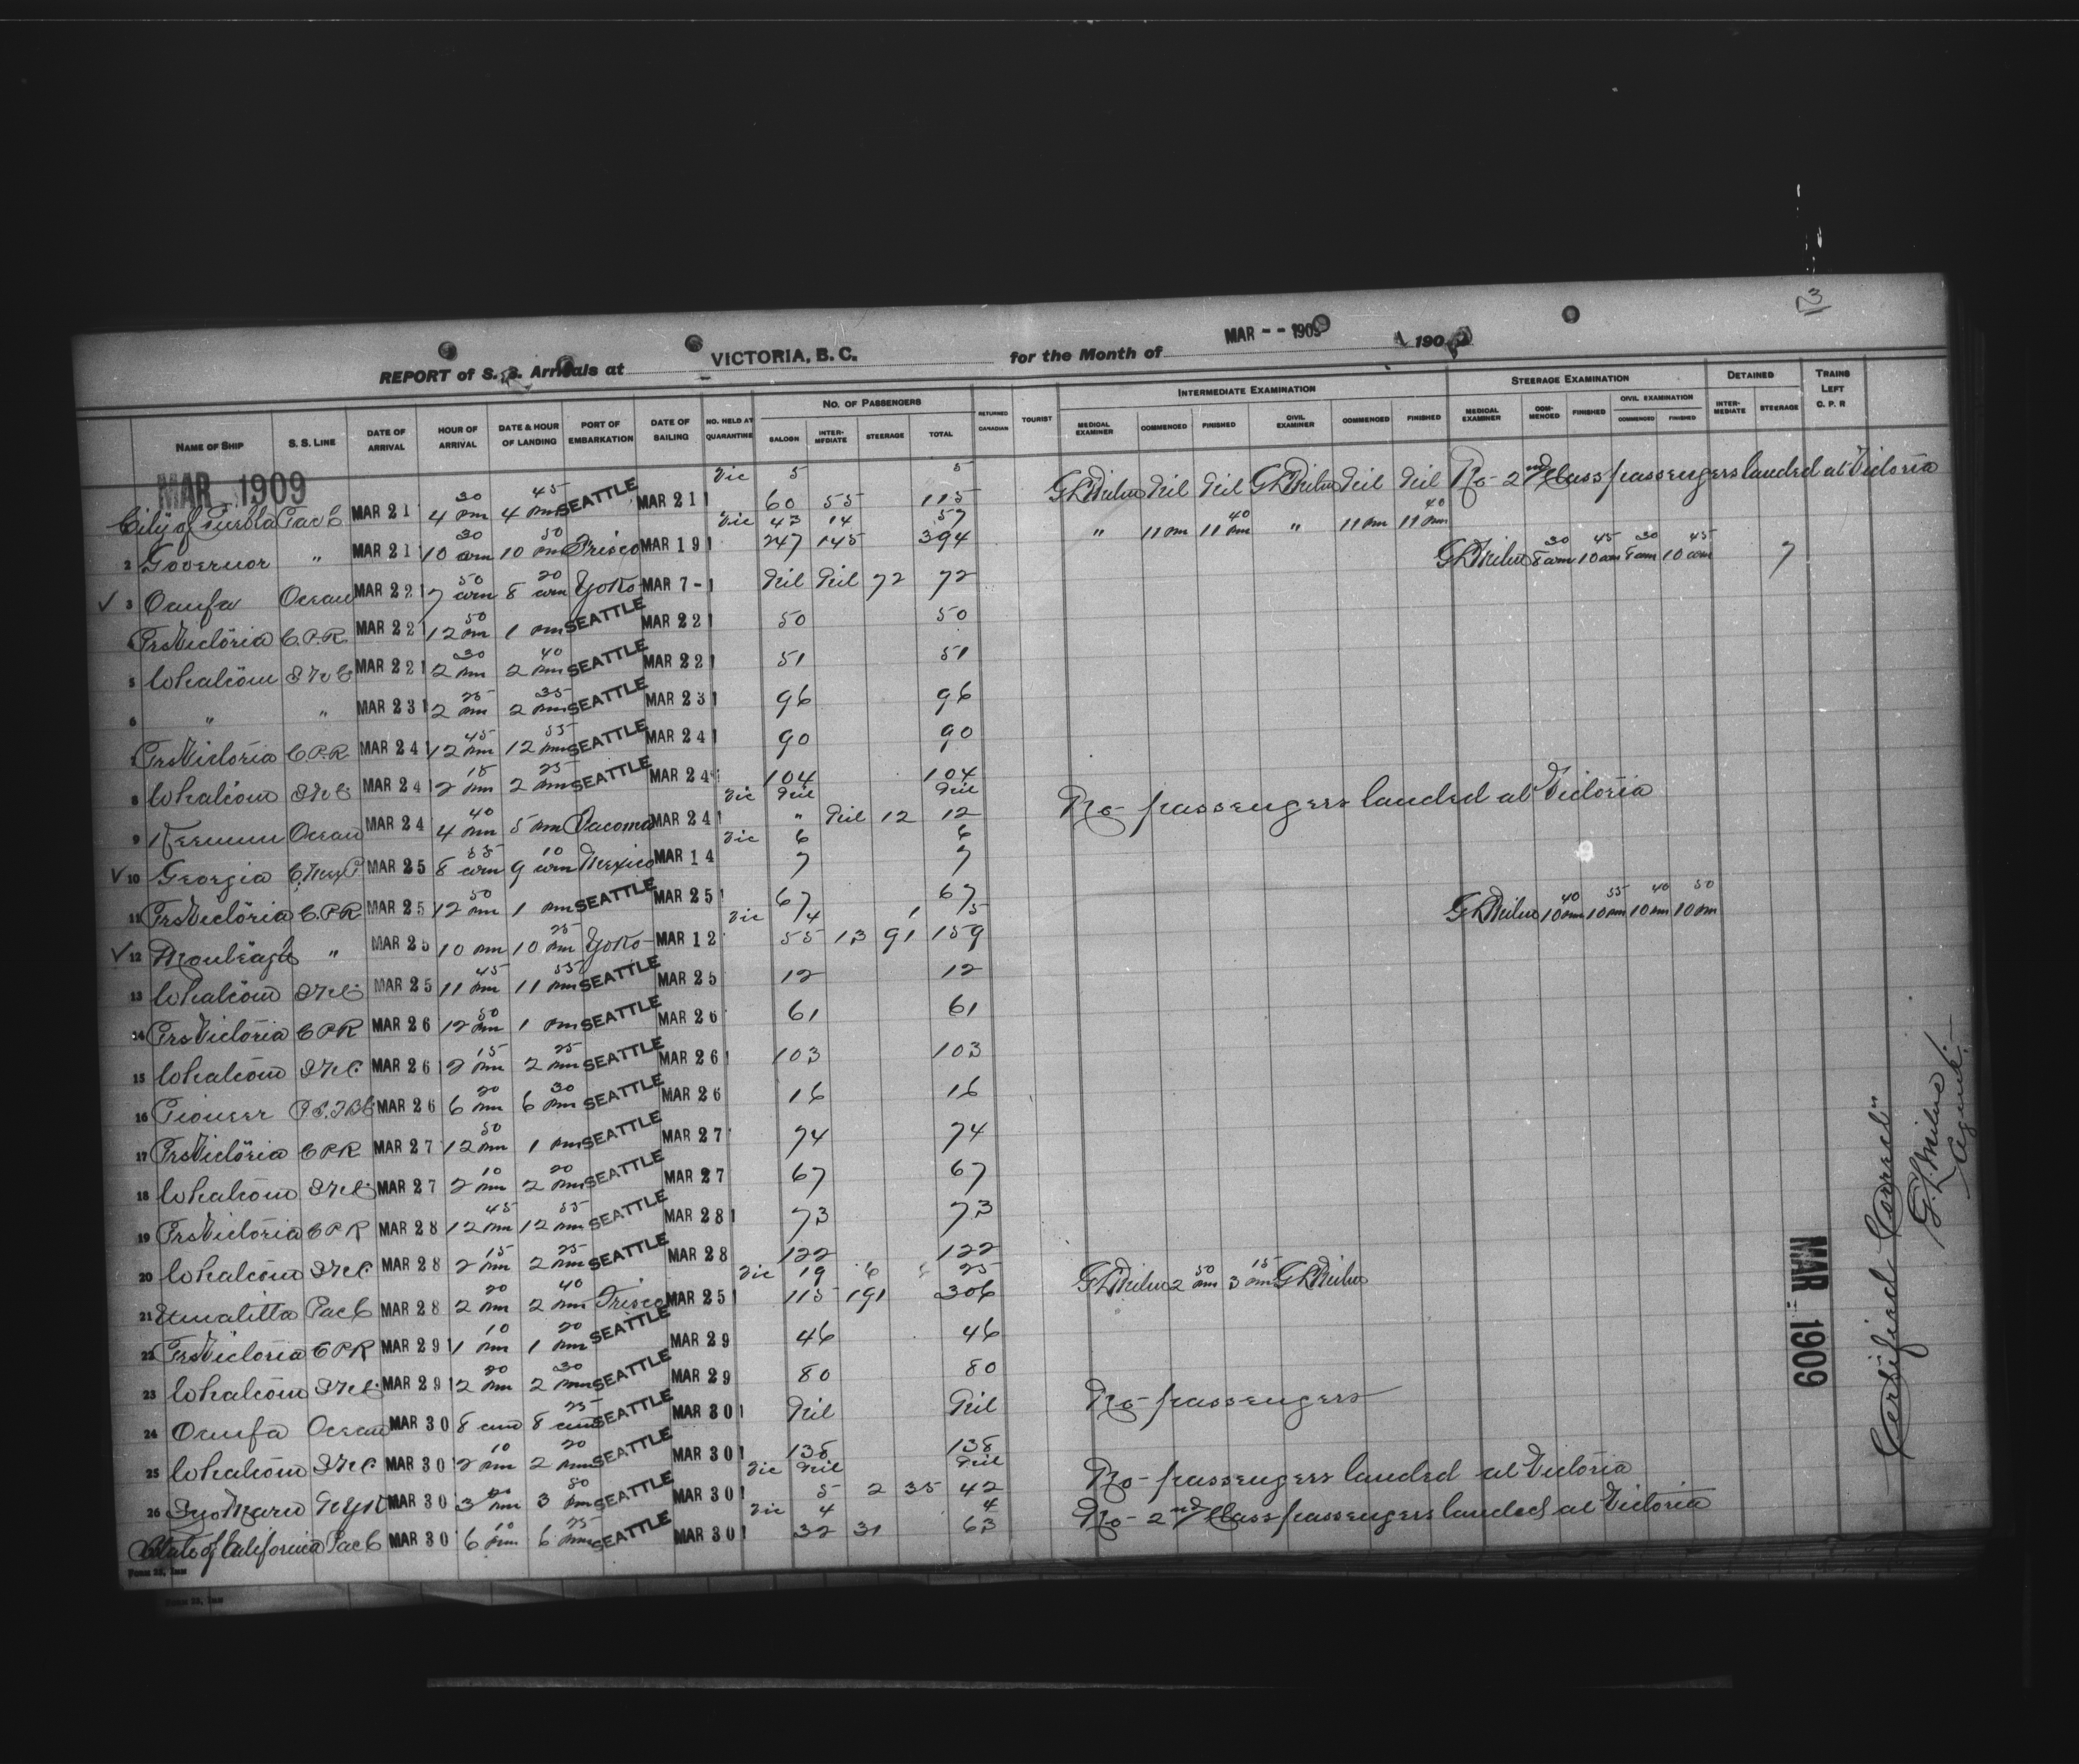 3
REPORT of S.S. Arrivals at VICTORIA, B. C. for the Month of MAR - - 1909 190
NAME OF SHIP S. S. LINE DATE OF ARRIVAL HOUR OF ARRIVAL DATE & HOUR OF LANDING PORT OF EMBARKATION DATE OF SAILING NO. HELD AT QUARANTINE NO. OF PASSENGERS SALOON INTERMEDIATE STEERAGE TOTAL RETURNED CANADIAN TOURIST INTERMEDIATE EXAMINATION MEDICAL EXAMINER COMMENCED FINISHED CIVIL EXAMINER COMMENCED FINISHED STEERAGE EXAMINATION MEDICAL EXAMINER COMMENCED FINISHED CIVIL EXAMINATION COMMENCED FINISHED DETAINED INTERMEDIATE STEERAGE TRAINS LEFT C. P. R
MAR 1909
Vic 5 5
City of Puebla Pac C MAR 21 4 30 pm 4 45 pm SEATTLE MAR 21 60 55 115 GLMilne Nil Nil GLMilne Nil Nil No- 2nd Class passengers landed at Victoria
Vic 43 14 57
2 Governor " MAR 21 10 30 am 10 50 pm Frisco MAR 19 247 145 394 " 11 pm 11 40 pm " 11 pm 11 40 pm
√ 3 Oanfa Ocean MAR 22 7 50 am 8 20 am Yoko- MAR 7- Nil Nil 72 72 GLMilne 8 30 am 10 45 am 8 30 am 10 45 am 7
4 Prs Victoria C.P.R MAR 22 12 50 pm 1 pm SEATTLE MAR 22 50 50
5 Whatcom MAR 22 2 30 pm 2 40 pm SEATTLE MAR 22 51 51
6 " " MAR 23 2 25 pm 2 35 pm SEATTLE MAR 23 96 96
7 Prs Victoria C.P.R MAR 24 12 45 pm 12 55 pm SEATTLE MAR 24 90 90
8 Whatcom MAR 24 2 15 pm 2 25 pm SEATTLE MAR 24 104 104
Vic Nil Nil
9 Keemun Ocean MAR 24 4 40 pm 5 pm Tacoma MAR 24 " Nil 12 12 No- passengers landed at Victoria
Vic 6 6
√ 10 Georgia C. Mex P MAR 25 8 55 am 9 10 am Mexico MAR 14 7 7
11 Prs Victoria C.P.R MAR 25 12 50 pm 1 pm SEATTLE MAR 25 67 67
Vic 14 1 15
√ 12 Monteagle " MAR 25 10 pm 10 25 pm Yoko- MAR 12 55 13 91 159 GLMilne 10 40 pm 10 55 pm 10 40 pm 10 50 pm
13 Whatcom MAR 25 11 45 pm 11 55 pm SEATTLE MAR 25 12 12
14 Prs Victoria C P R MAR 26 12 50 pm 1 pm SEATTLE MAR 26 61 61
15 Whatcom MAR 26 2 15 pm 2 25 pm SEATTLE MAR 26 103 103
16 Pioneer MAR 26 6 20 pm 6 30 pm SEATTLE MAR 26 16 16
17 Prs Victoria C P R MAR 27 12 50 pm 1 pm SEATTLE MAR 27 74 74
18 Whatcom MAR 27 2 10 pm 2 20 pm SEATTLE MAR 27 67 67
19 Prs Victoria C P R MAR 28 12 45 pm 12 55 pm SEATTLE MAR 28 73 73
20 Whatcom MAR 28 2 15 pm 2 25 pm SEATTLE MAR 28 122 122
Vic 19 6 25
21 Umatilla Pac C MAR 28 2 20 pm 2 40 pm Frisco MAR 25 115 191 306 GLMilne 2 50 pm 3 15 pm GLMilne
22 Prs Victoria C P R MAR 29 1 10 pm 1 20 pm SEATTLE MAR 29 46 46
23 Whatcom MAR 29 2 20 pm 2 30 pm SEATTLE MAR 29 80 80
24 Oanfa Ocean MAR 30 8 am 8 25 am SEATTLE MAR 30 Nil Nil No- passengers
25 Whatcom MAR 30 2 10 pm 2 20 pm SEATTLE MAR 30 138 138
Vic Nil Nil
26 Iyo Maru N Y K MAR 30 3 20 pm 3 50 pm SEATTLE MAR 30 5 2 35 42 No- passengers landed at Victoria
Vic 4 4
State of California Pac C MAR 30 6 10 pm 6 25 pm SEATTLE MAR 30 32 31 63 No- 2nd Class passengers landed at Victoria
FORM 23, IMM
FORM 23, IMM
MAR - 1909
"Certified Correct"
G.L. Milne
Agent.-